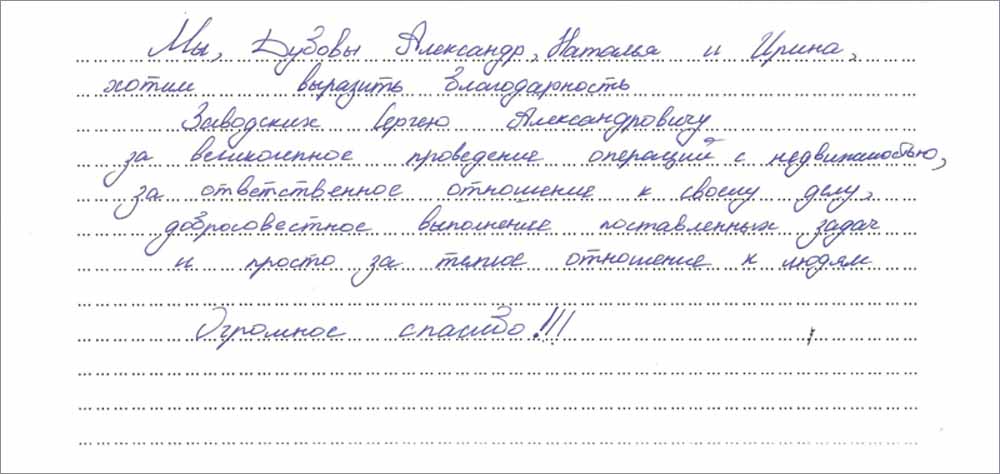 Мы, Дубовы Александр, Наталья и Ирина,
хотим выразить благодарность
Заводских Сергею Александровичу
за великолепное проведение операций с недвижимостью,
за ответственное отношение к своему делу,
добросовестное выполнение поставленных задач
и просто за теплое отношение к людям
Огромное спасибо!!!